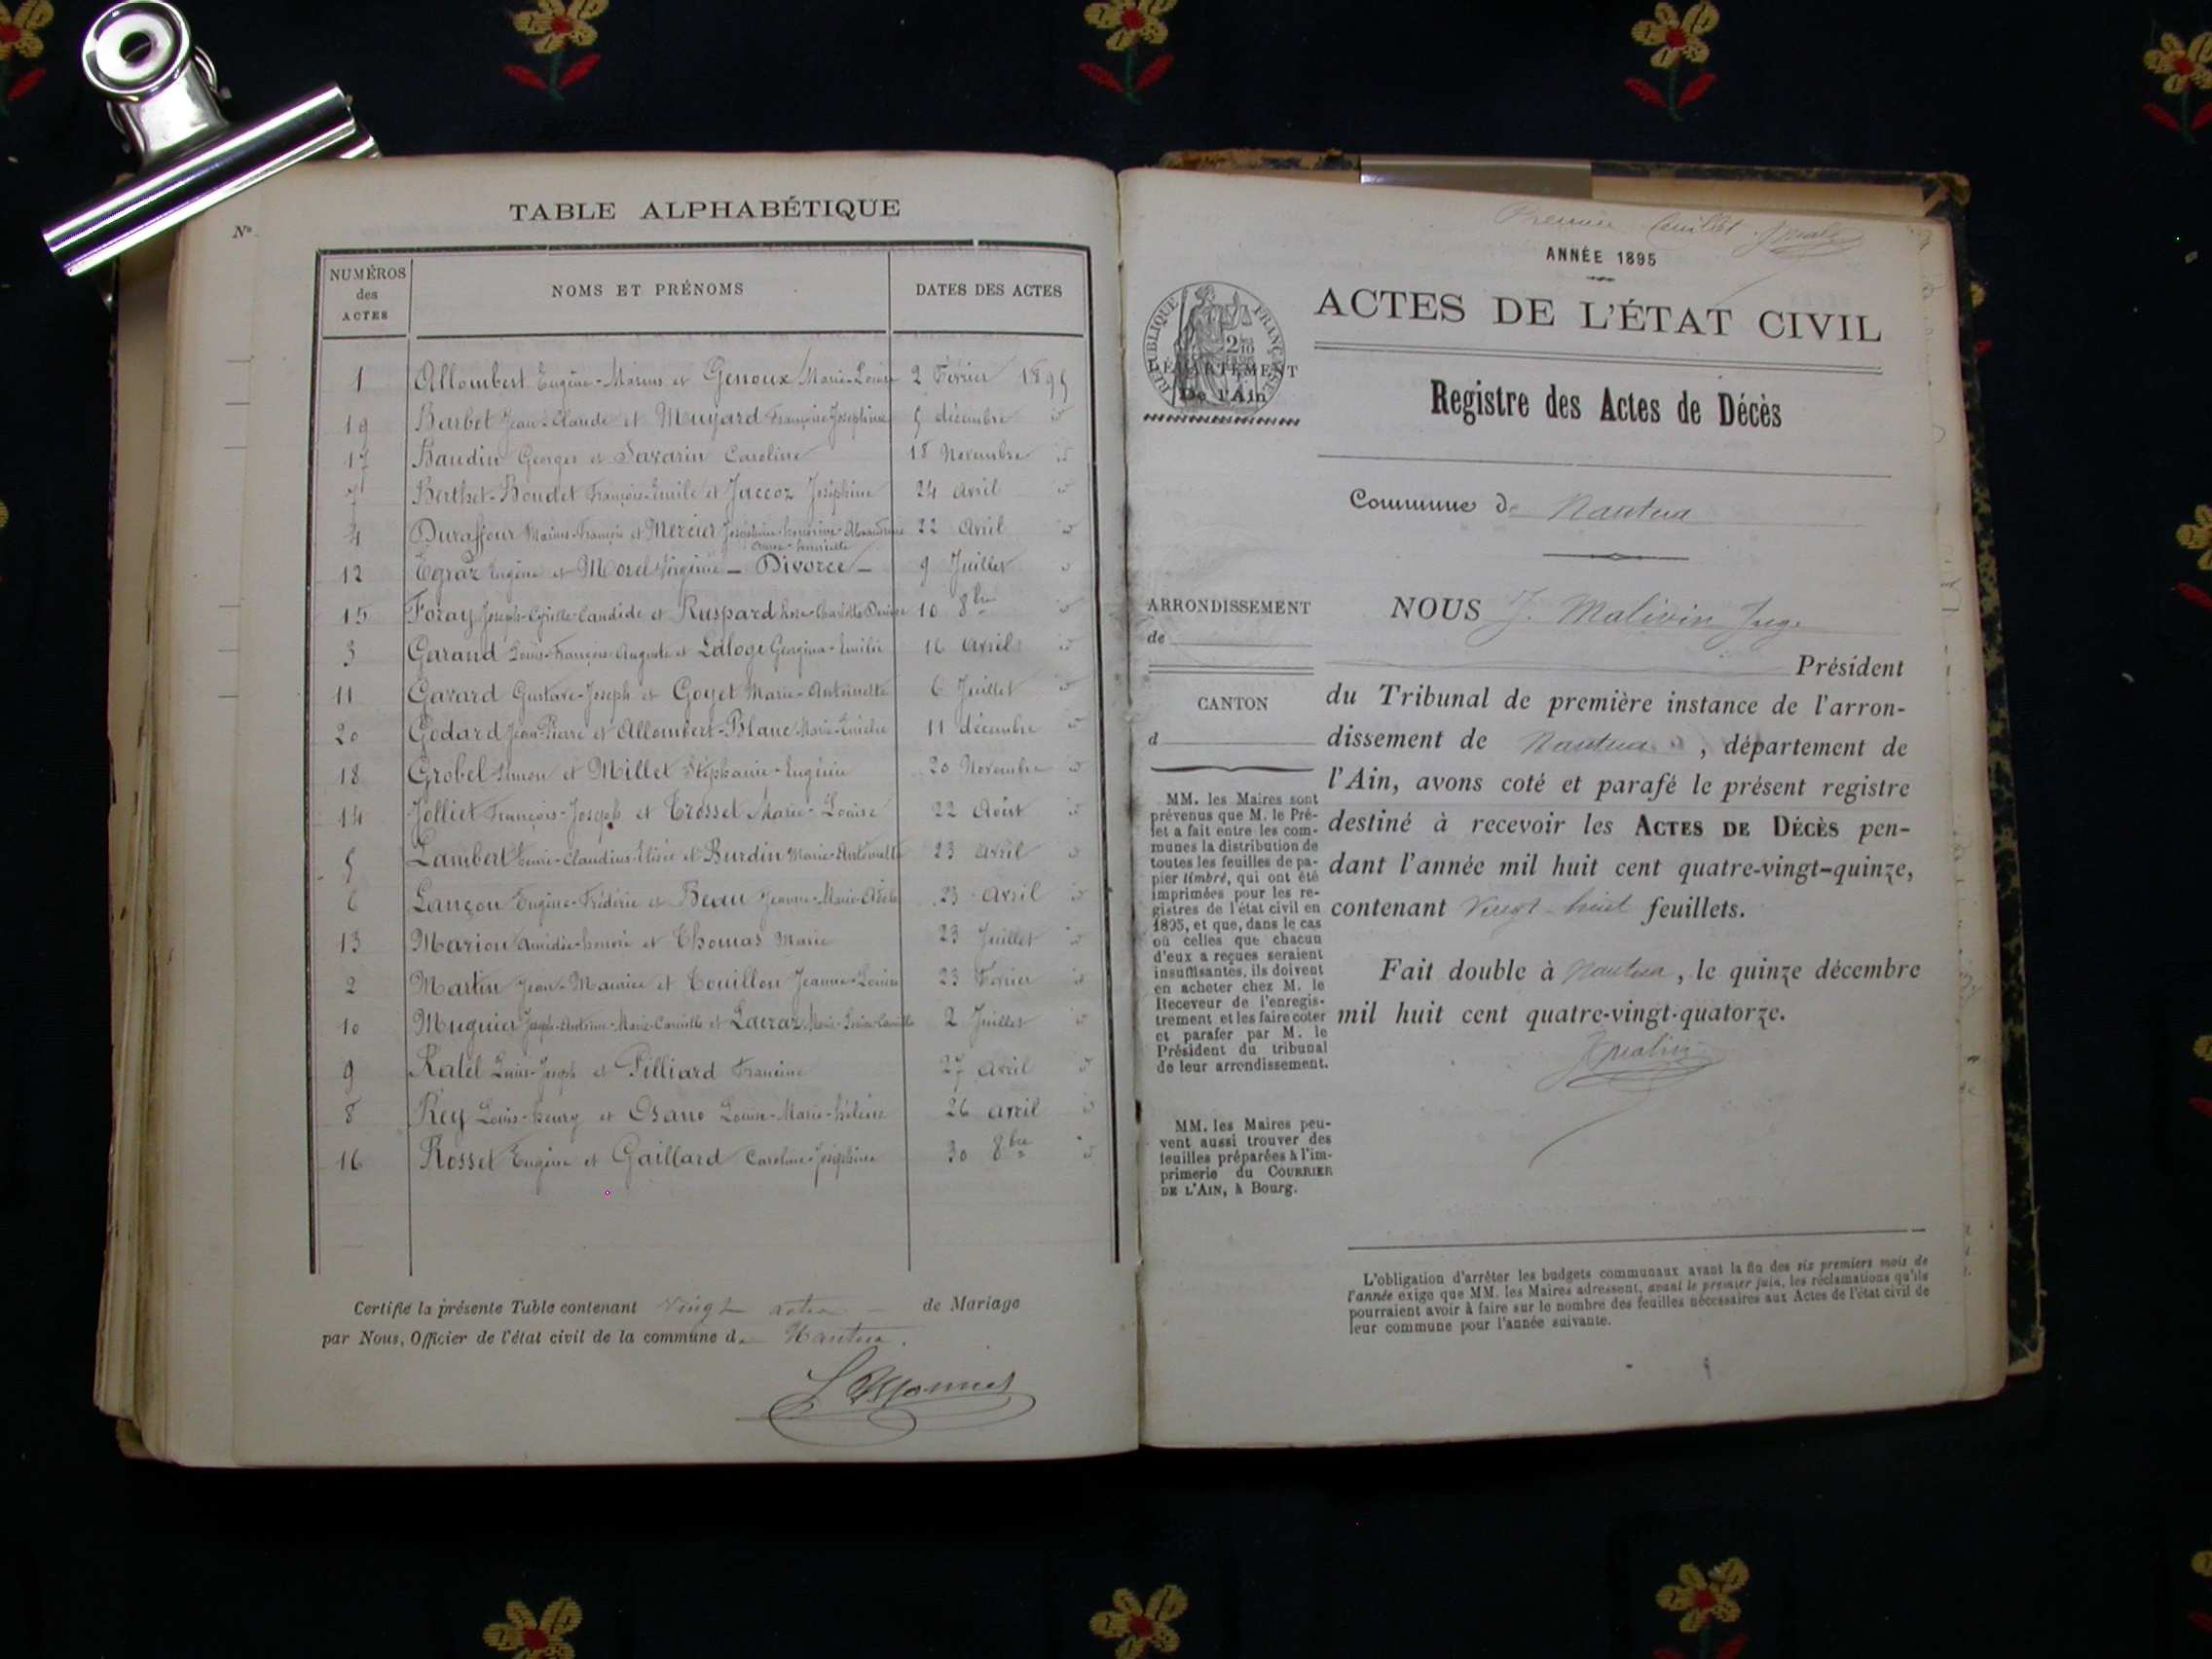 TABLE ALPHABÉTIQUE
Nº
NUMÉROS des ACTES
NOMS ET PRÉNOMS
DATES DES ACTES
1 Allombert Eugène-Marius et Genoux Marie-Louise 2 Février 1895
19 Barbet Jean-Claude et Muyard Françoise Joséphine 5 décembre id
17 Baudin Georges et Savarin Caroline 18 Novembre id
7 Berthet-Bondet François-Emile et Jaccoz Joséphine 24 avril id
4 Duraffour Marius-François et Mercier 22 avril id
12 Egraz Eugène et Morel Virginie - Divorce - 9 Juillet id
15 Foray Joseph-Cyrille-Candide et Ruspard Rose-Charlotte-Denise 10 8bre id
3 Garand Louis-François-Auguste et Laloge Georgina-Emilie 16 avril id
11 Gavard Gustave-Joseph et Goyet Marie-Antoinette 6 Juillet id
20 Godard Jean-Pierre et Allombert-Blanc Marie-Emélie 11 décembre id
18 Grobel Simon et Millet Stéphanie-Eugénie 20 Novembre id
14 Jolliet François-Joseph et Crosset Marie-Louise 22 Août id
5 Lambert Henri-Claudius-Elisée et Burdin Marie-Antoinette 23 avril id
6 Lançon Eugène-Frédéric et Beau Jeanne-Marie-Adèle 23 avril id
13 Marion Amédée-honoré et Thomas Marie 23 Juillet id
2 Martin Jean-Maurice et Touillon Jeanne-Louise 23 Février id
10 Muguier Joseph-Antoine-Marie-Camille et Lacraz Marie-Louise-Camille 2 Juillet id
9 Ratel Louis-Joseph et Pilliard Francine 27 avril id
8 Rey Louis-henry et Osano Louise-Marie-hélène 26 avril id
16 Rosset Eugène et Gaillard Caroline-Joséphine 30 8bre id
Certifié la présente Table contenant vingt actes de Mariage
par Nous, Officier de l'état civil de la commune de Nantua.
Premier feuillet
ANNÉE 1895
ACTES DE L'ÉTAT CIVIL
RÉPUBLIQUE FRANÇAISE
DÉPARTEMENT
De l'Ain
Registre des Actes de Décès
Commune de Nantua
ARRONDISSEMENT
de
CANTON
d
MM. les Maires sont
prévenus que M. le Pré-
fet a fait entre les com-
munes la distribution de
toutes les feuilles de pa-
pier timbré, qui ont été
imprimées pour les re-
gistres de l'état civil en
1895, et que, dans le cas
où celles que chacun
d'eux a reçues seraient
insuffisantes, ils doivent
en acheter chez M. le
Receveur de l'enregis-
trement et les faire coter
et parafer par M. le
Président du tribunal
de leur arrondissement.
MM. les Maires peu-
vent aussi trouver des
feuilles préparées à l'im-
primerie du COURRIER
DE L'AIN, à Bourg.
NOUS J. Malivin Juge
Président
du Tribunal de première instance de l'arron-
dissement de Nantua, département de
l'Ain, avons coté et parafé le présent registre
destiné à recevoir les ACTES DE DÉCÈS pen-
dant l'année mil huit cent quatre-vingt-quinze,
contenant vingt-huit feuillets.
Fait double à Nantua, le quinze décembre
mil huit cent quatre-vingt-quatorze.
L'obligation d'arrêter les budgets communaux avant la fin des six premiers mois de
l'année exige que MM. les Maires adressent, avant le premier juin, les réclamations qu'ils
pourraient avoir à faire sur le nombre des feuilles nécessaires aux Actes de l'état civil de
leur commune pour l'année suivante.